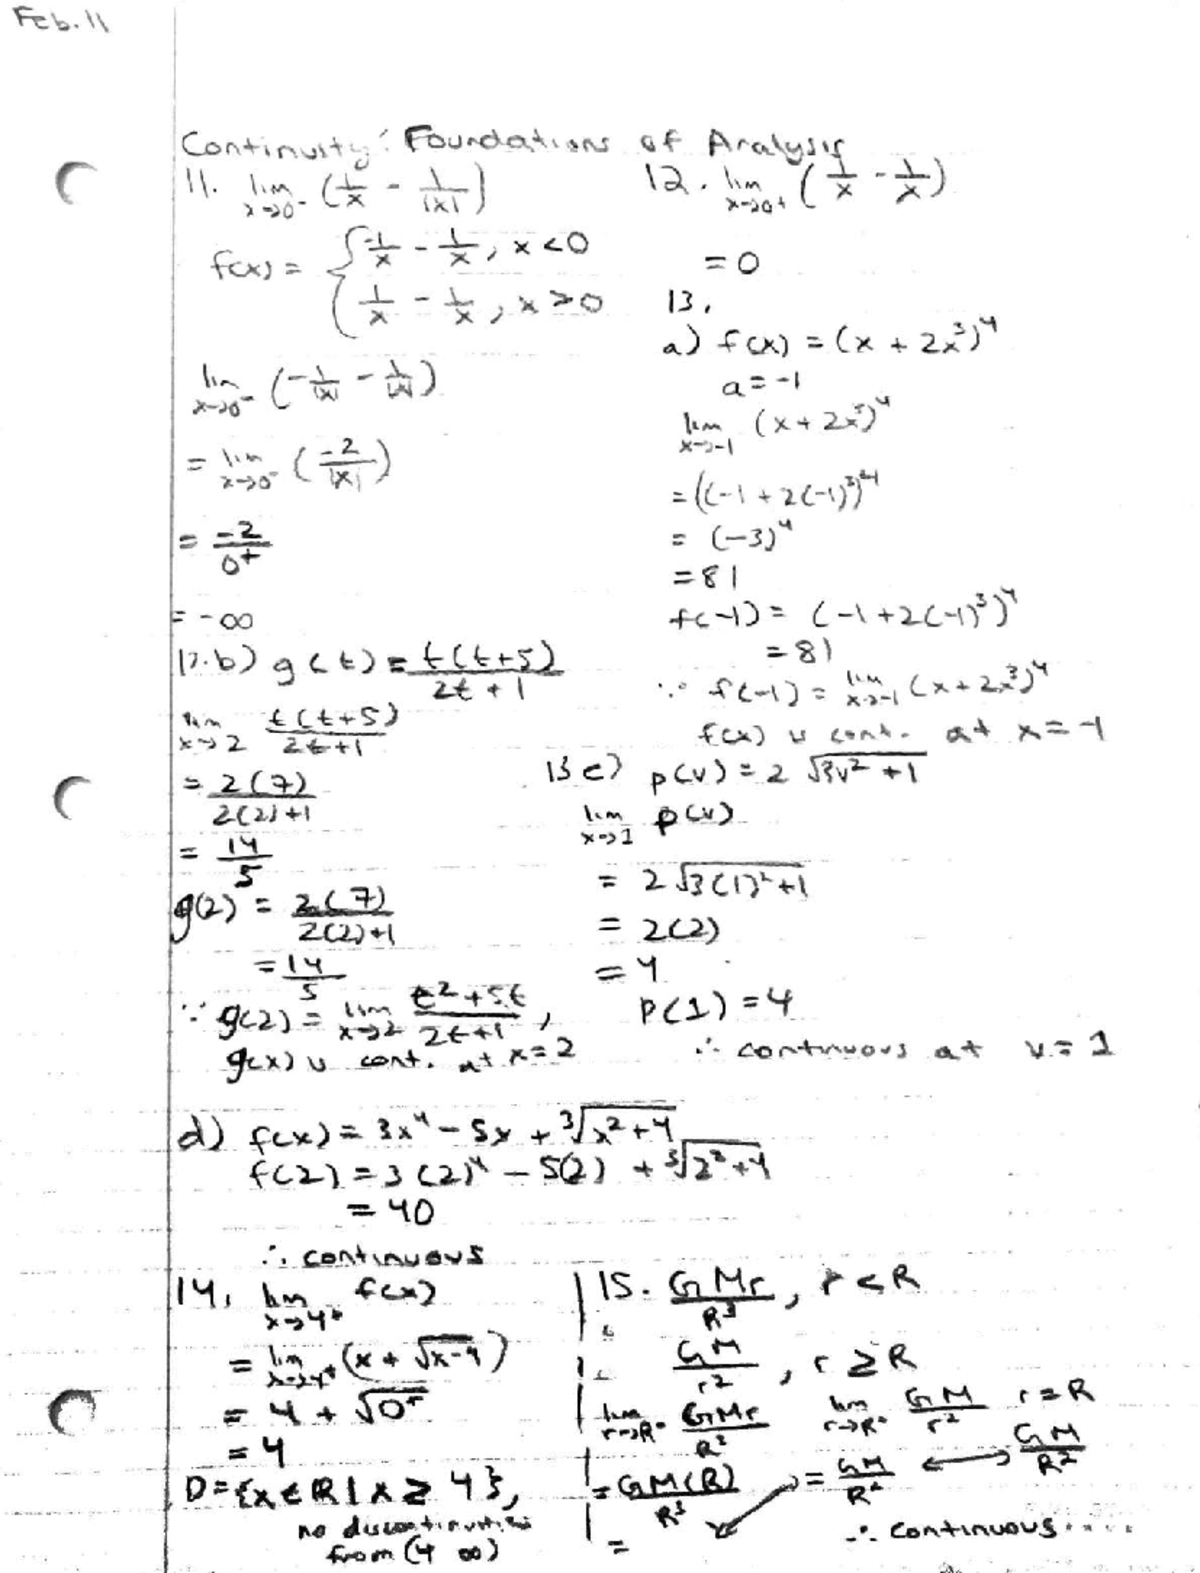 Feb. 11
Continuity: Foundations of Analysis
11. lim x→0⁻ (1/x - 1/|x|)
f(x) = { -1/x - 1/x, x < 0
{ 1/x - 1/x, x > 0
lim x→0⁻ (-1/|x| - 1/|x|)
= lim x→0⁻ (-2/|x|)
= -2/0⁺
= -∞
12. lim x→0⁺ (1/x - 1/x)
= 0
13.
a) f(x) = (x + 2x³)⁴
a = -1
lim x→-1 (x + 2x³)⁴
= ((-1 + 2(-1)³)⁴
= (-3)⁴
= 81
f(-1) = (-1 + 2(-1)³)⁴
= 81
∵ f(-1) = lim x→-1 (x + 2x³)⁴
f(x) is cont. at x = -1
13.b) g(t) = t(t+5)/2t + 1
lim x→2 t(t+5)/2t+1
= 2(7)/2(2)+1
= 14/5
g(2) = 2(7)/2(2)+1
= 14/5
∵ g(2) = lim x→2 t²+5t/2t+1,
g(x) is cont. at x = 2
13 c) p(v) = 2 √3v² + 1
lim x→1 p(v)
= 2 √3(1)² + 1
= 2(2)
= 4
p(1) = 4
∴ continuous at v = 1
d) f(x) = 3x⁴ - 5x + ³√x² + 4
f(2) = 3(2)⁴ - 5(2) + ³√2² + 4
= 40
∴ continuous
14. lim x→4⁺ f(x)
= lim x→4⁺ (x + √x-4)
= 4 + √0⁺
= 4
D = {x ∈ R | x ≥ 4},
no discontinuities
from (4 ∞)
15. GMr/R³, r < R
GM/r², r ≥ R
lim r→R⁻ GMr/R²
= GM(R)/R³
=
lim r→R⁺ GM/r²
= GM/R²
r = R
GM/R²
∴ continuous....